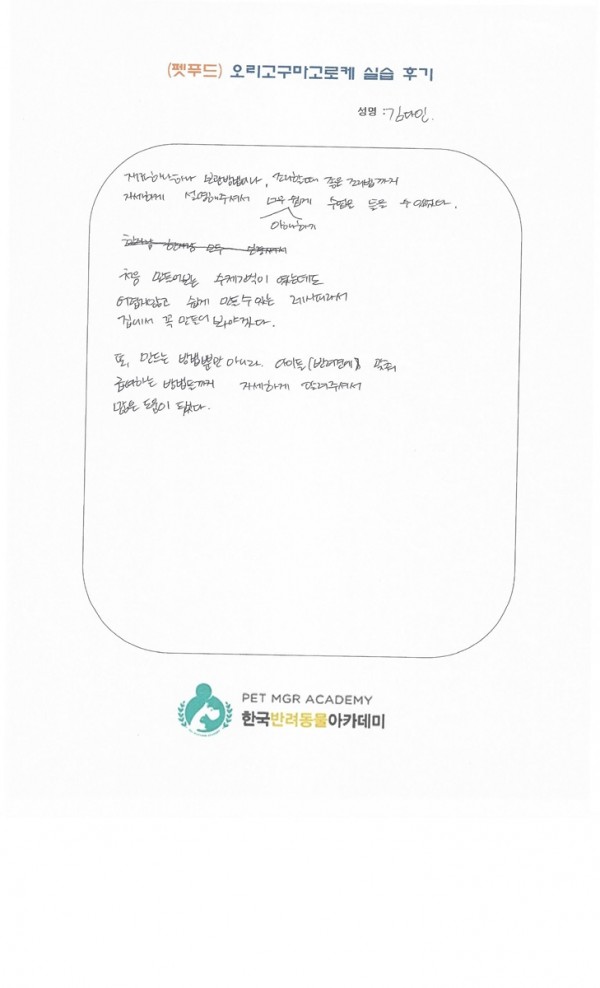 (펫푸드) 오리고구마고로케 실습 후기
성명 : 김다인.
재료하나하나 보관방법이나, 조리할때 좋은 조리법까지
자세하게 설명해주셔서 너무 쉽게 수업을 들을 수 있었다.
이해하기
처음 만들어보는 수제간식이 였는데도
어렵지않고 쉽게 만들수 있는 레시피라서
집에서 꼭 만들어 봐야겠다.
또, 만드는 방법뿐만 아니라, 아이들(반려견에)
급여하는 방법들까지 자세하게 알려주셔서
많은 도움이 됬다.
PET MGR ACADEMY
한국반려동물아카데미